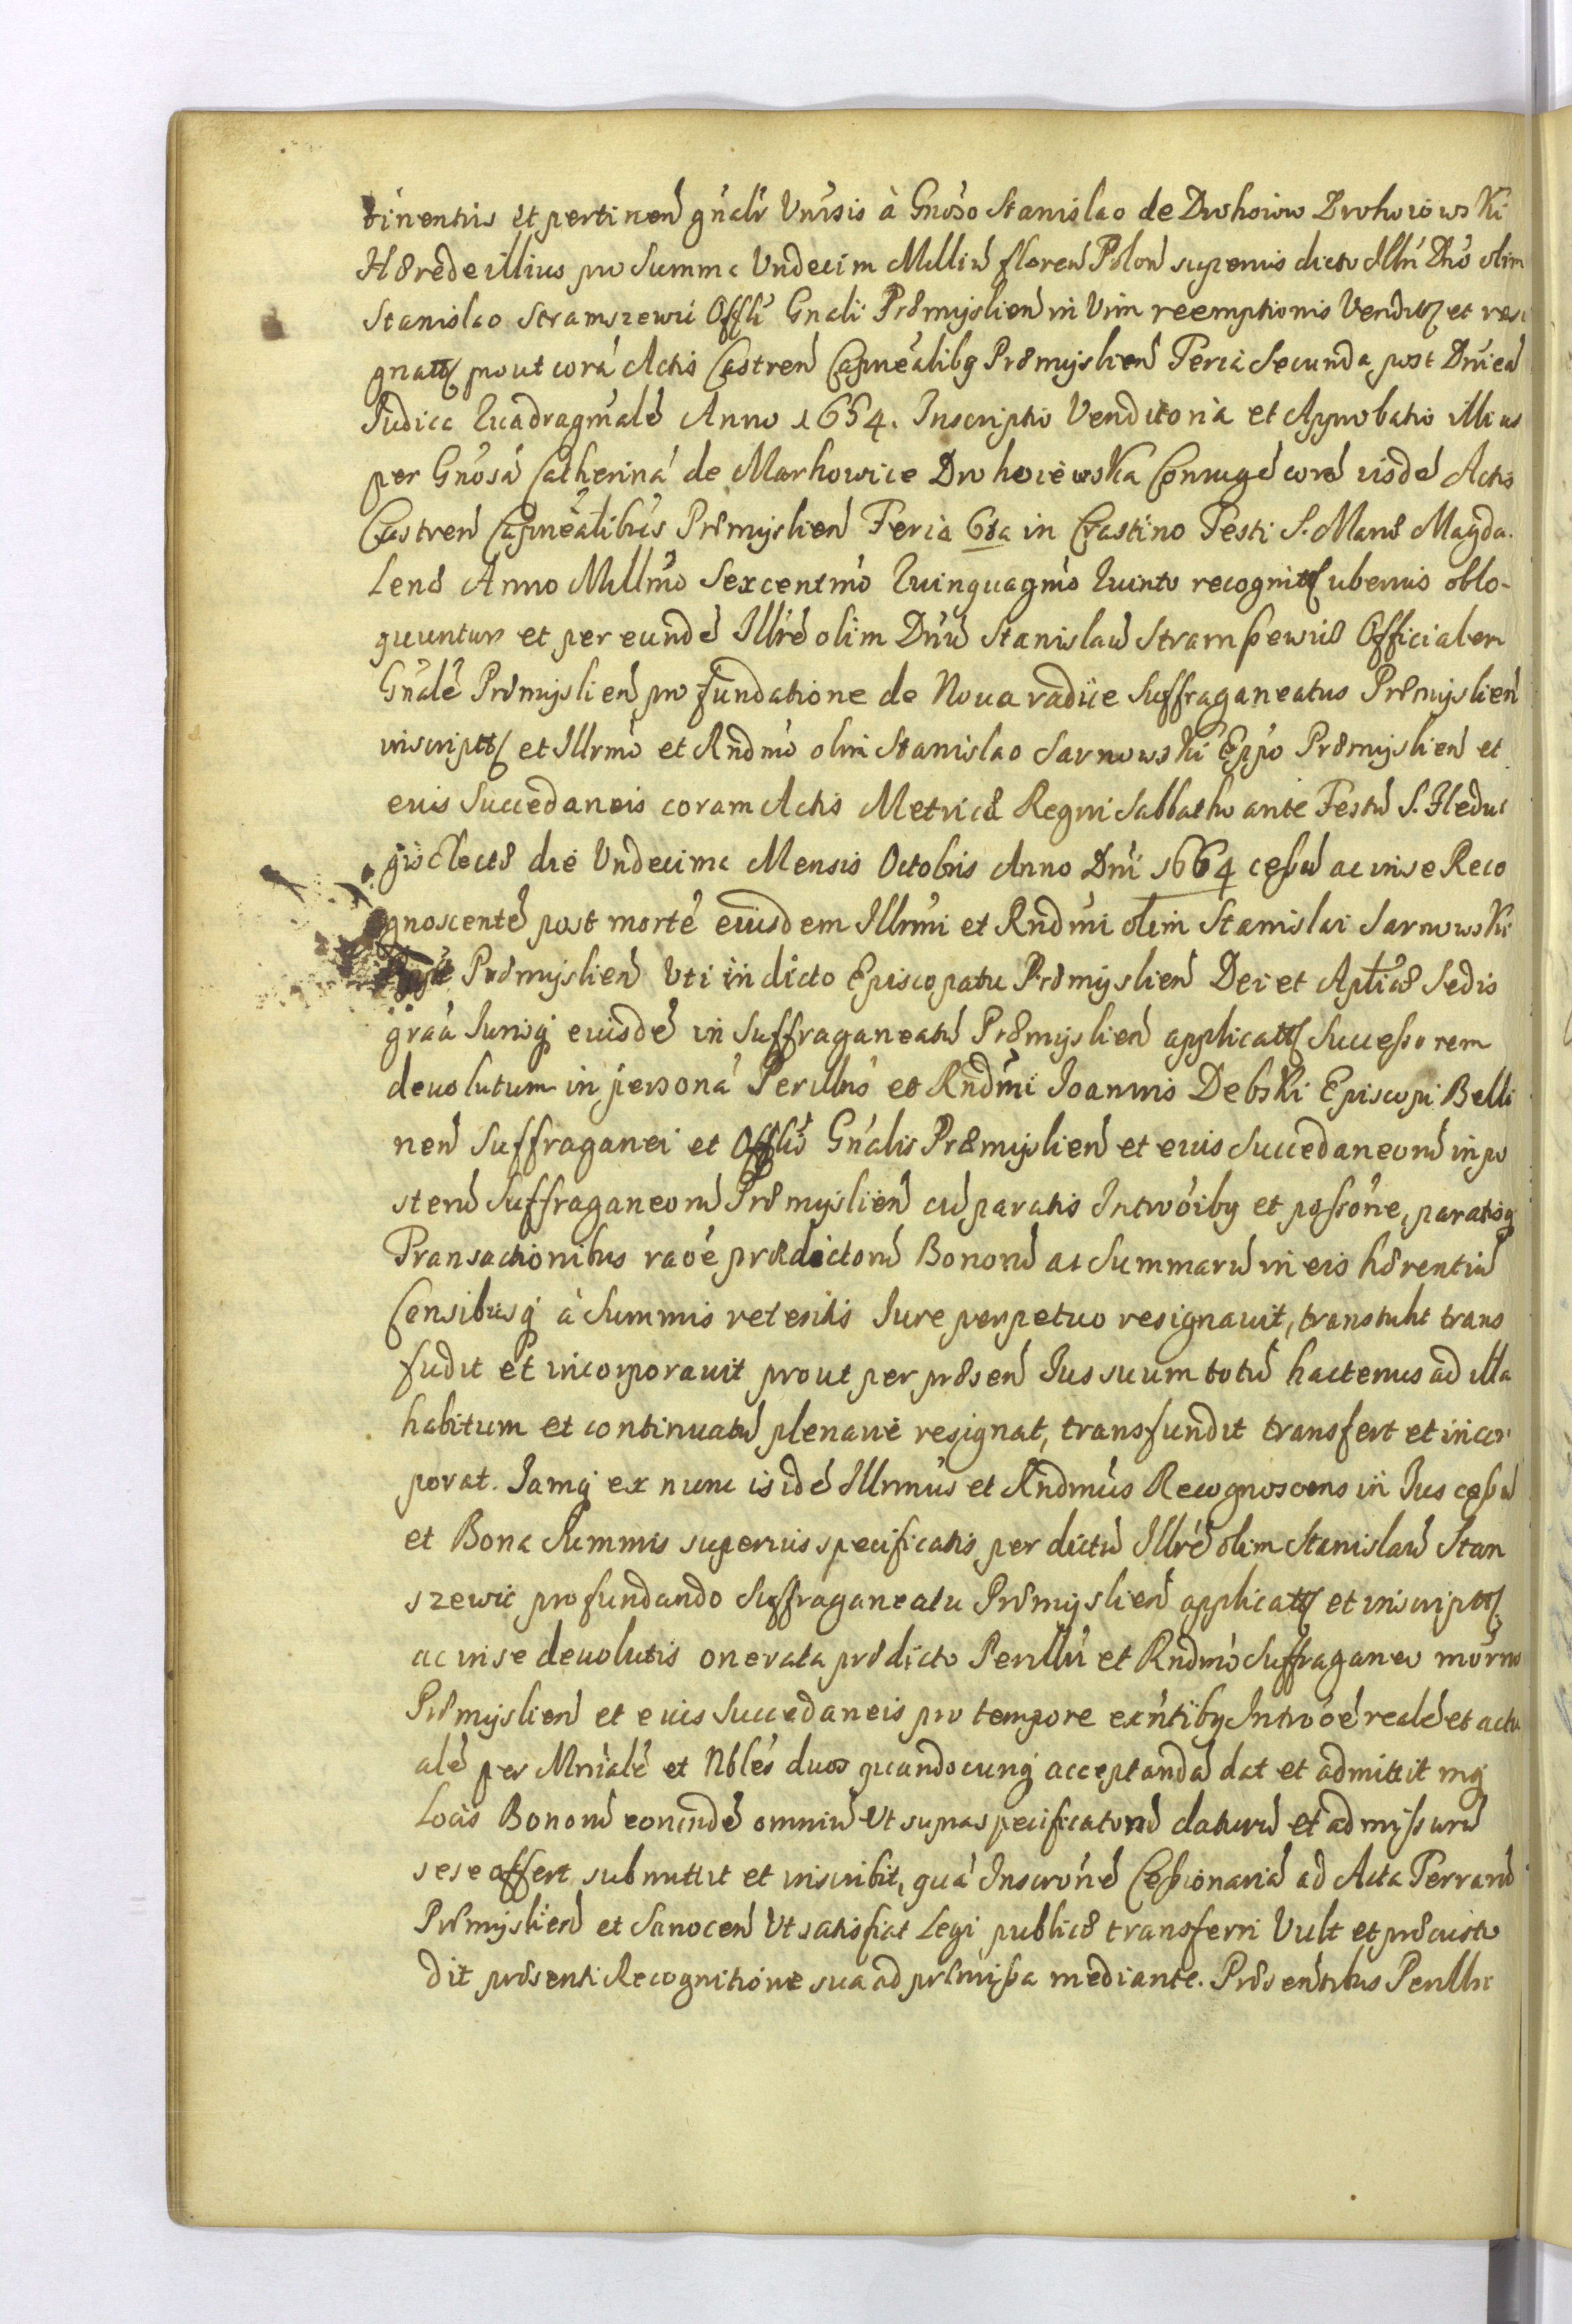 tinentiis et pertinen gñalir Vnirsis à Gnoso Stanislao de Drohoiow Drohoiowski
Hærede illius pro Summa Vndecim Milliū floren Polon superius dicto Illri Dño olim
Stanislao Stramszewii Offli Gnali Præmyslien in Vim reemptionis Vendit et resi
gnatt prout corá Actis Castren Capnealibq Præmyslien Feria Secunda post Dnicā
Judica Quadragmalē Anno 1654. Inscriptio Venditoria et Approbatio illius
per Gnosā Catherinā de Markowice Drohoiewska Coniugē corā iisdē Actis
Castren Capnealibus Præmyslien Feria 6ta in Crastino Festi S. Mariæ Magda.
lenæ Anno Millmo Sexcentmo Quinquagmo Quinto recognitt uberius oblo-
quuntur et per eundē Illrē olim Dnū Stanislaū Stramszewic Officialem
Gnalē Præmyslien pro fundatione de Noua radice Suffraganeatus Præmyslien
inscriptt et Illrmo et Rndmo olim Stanislao Sarnowski Eppo Præmyslien et
euis Succedaneis coram Actis Metricæ Regni Sabbatho ante Festū S. Hedui
gis Electæ die Vndecima Mensis Octobris Anno Dni 1664 ceßū ac in se Reco
gnoscentē post mortē eiusdem Illrmi et Rndmi olim Stanislai Sarnowski
Eppi Præmyslien Vti in dicto Episcopatu Præmyslien Dei et Aplicæ Sedis
graā Jurisq eiusdē in Suffraganeatū Præmyslien applicatt Succeßorem
deuolutum in personā Perillris et Rndmi Joannis Debski Episcopi Belli
nen Suffraganei et Offlis Gnalis Præmyslien et euis Succedaneorū in po
sterū Suffraganeorū Præmyslien cū paratis Introoibq et poßone, paratisq
Transactionibus raoē prædictorū Bonorū ac Summarū in eis hærentiū
Censibusq à Summis retentis Jure perpetuo resignauit, transtulit trans
fudit et incorporauit prout per præsen Jus suum totū hactenus ad illa
habitum et continuatū plenariē resignat, transfundit transfert et incor
porat. Jamq ex nunc isidē Illrmus et Rndmus Recognoscens in Jus ceßū
et Bona Summis superius specificatis per dictū Illrē olim Stanislaū Stam
szewic pro fundando Suffraganeatu Præmyslien applicatt et inscriptt
ac in se deuolutis onerata prædicto Perillri et Rndmo Suffraganeo morno
Præmyslien et euis Succedaneis pro tempore exntibq Introoē realē et actu
alē per Mnialē et Nblēs duos quandocunq acceptandā dat et admittit inq
Locis Bonorū eorundē omniū Vt supra specificatorū daturū et admißurū
sese offert, submittit et inscribit, quā Inscronē Ceßionariā ad Acta Terrarū
Præmyslien et Sanocen Vt satisfiat Legi publicæ transferri Vult et præcusto
dit præsenti Recognitione sua ad præmißa mediante. Præsentibus Perillri